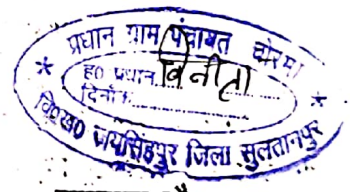 * प्रधान ग्राम पंचायत चोरमा *
ह० प्रधान विनीता
दिनांक
वि०ख० जयसिंहपुर जिला सुलतानपुर